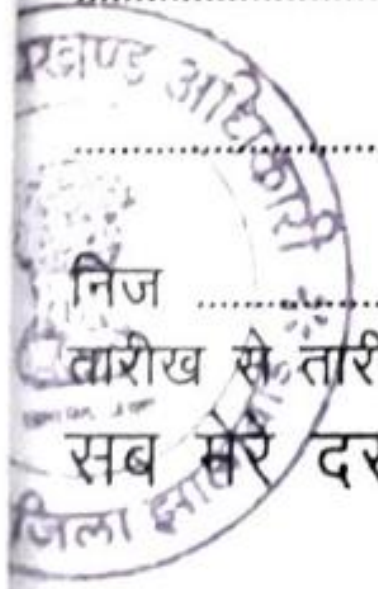 रखण्ड अधिकारी
निज
तारीख से तारी
सब मेरे दस
जिला